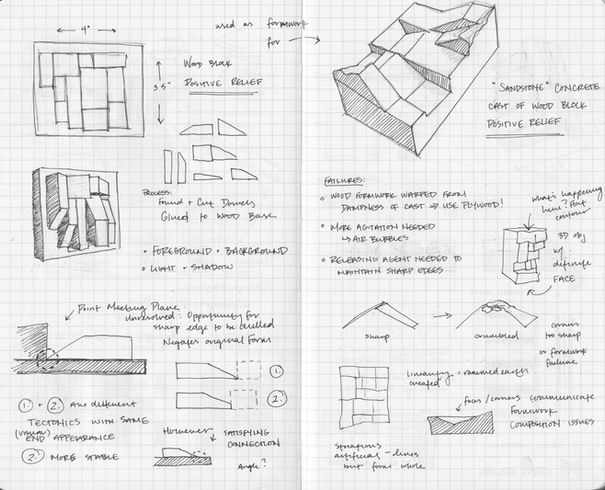 4"
3.5"
WOOD BLOCK
POSITIVE RELIEF
used as formwork
for
PROCESS:
Found + Cut Dowels
Glued to Wood Base
• FOREGROUND + BACKGROUND
• LIGHT + SHADOW
Point Meeting Plane
Unresolved: Opportunity for
sharp edge to be dulled
Negates original Form
1.
2.
1. + 2. Are different
TECTONICS WITH SAME
(visual)
END APPEARANCE
2. MORE STABLE
However
SATISFYING
CONNECTION
Angle?
"SANDSTONE" CONCRETE
CAST OF WOOD BLOCK
POSITIVE RELIEF
FAILURES:
• WOOD FORMWORK WARPED FROM
DAMPNESS OF CAST ⇒ USE PLYWOOD!
• MORE AGITATION NEEDED
↳ AIR BUBBLES
• RELEASING AGENT NEEDED TO
MAINTAIN SHARP EDGES
what's happening
here? Flat
contour
3D obj
w/
definite
FACE
sharp
crumbled
corners
too sharp
or formwork
failure
linearity
created
= rammed earth
faces/corners communicate
formwork
composition issues
artificial - lines
but form whole